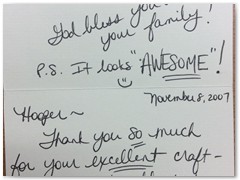 God bless you
your family!
P.S. It looks "AWESOME"!
November 8, 2007
Hooper~
Thank you so much
for your excellent craft-